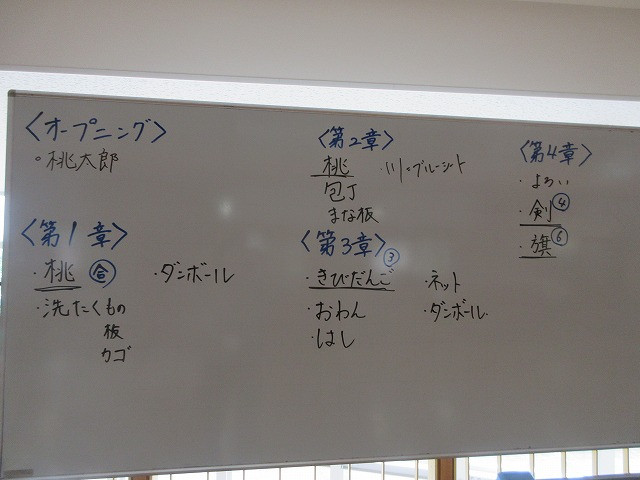 〈オープニング〉
○桃太郎
〈第1章〉
・桃 合 ・ダンボール
・洗たくもの
板
カゴ
〈第2章〉
桃 ・川・ブルーシート
包丁
まな板
〈第3章〉
・きびだんご ③ ・ネット
・おわん ・ダンボール
・はし
〈第4章〉
・よろい
・剣 ④
・旗 ⑥